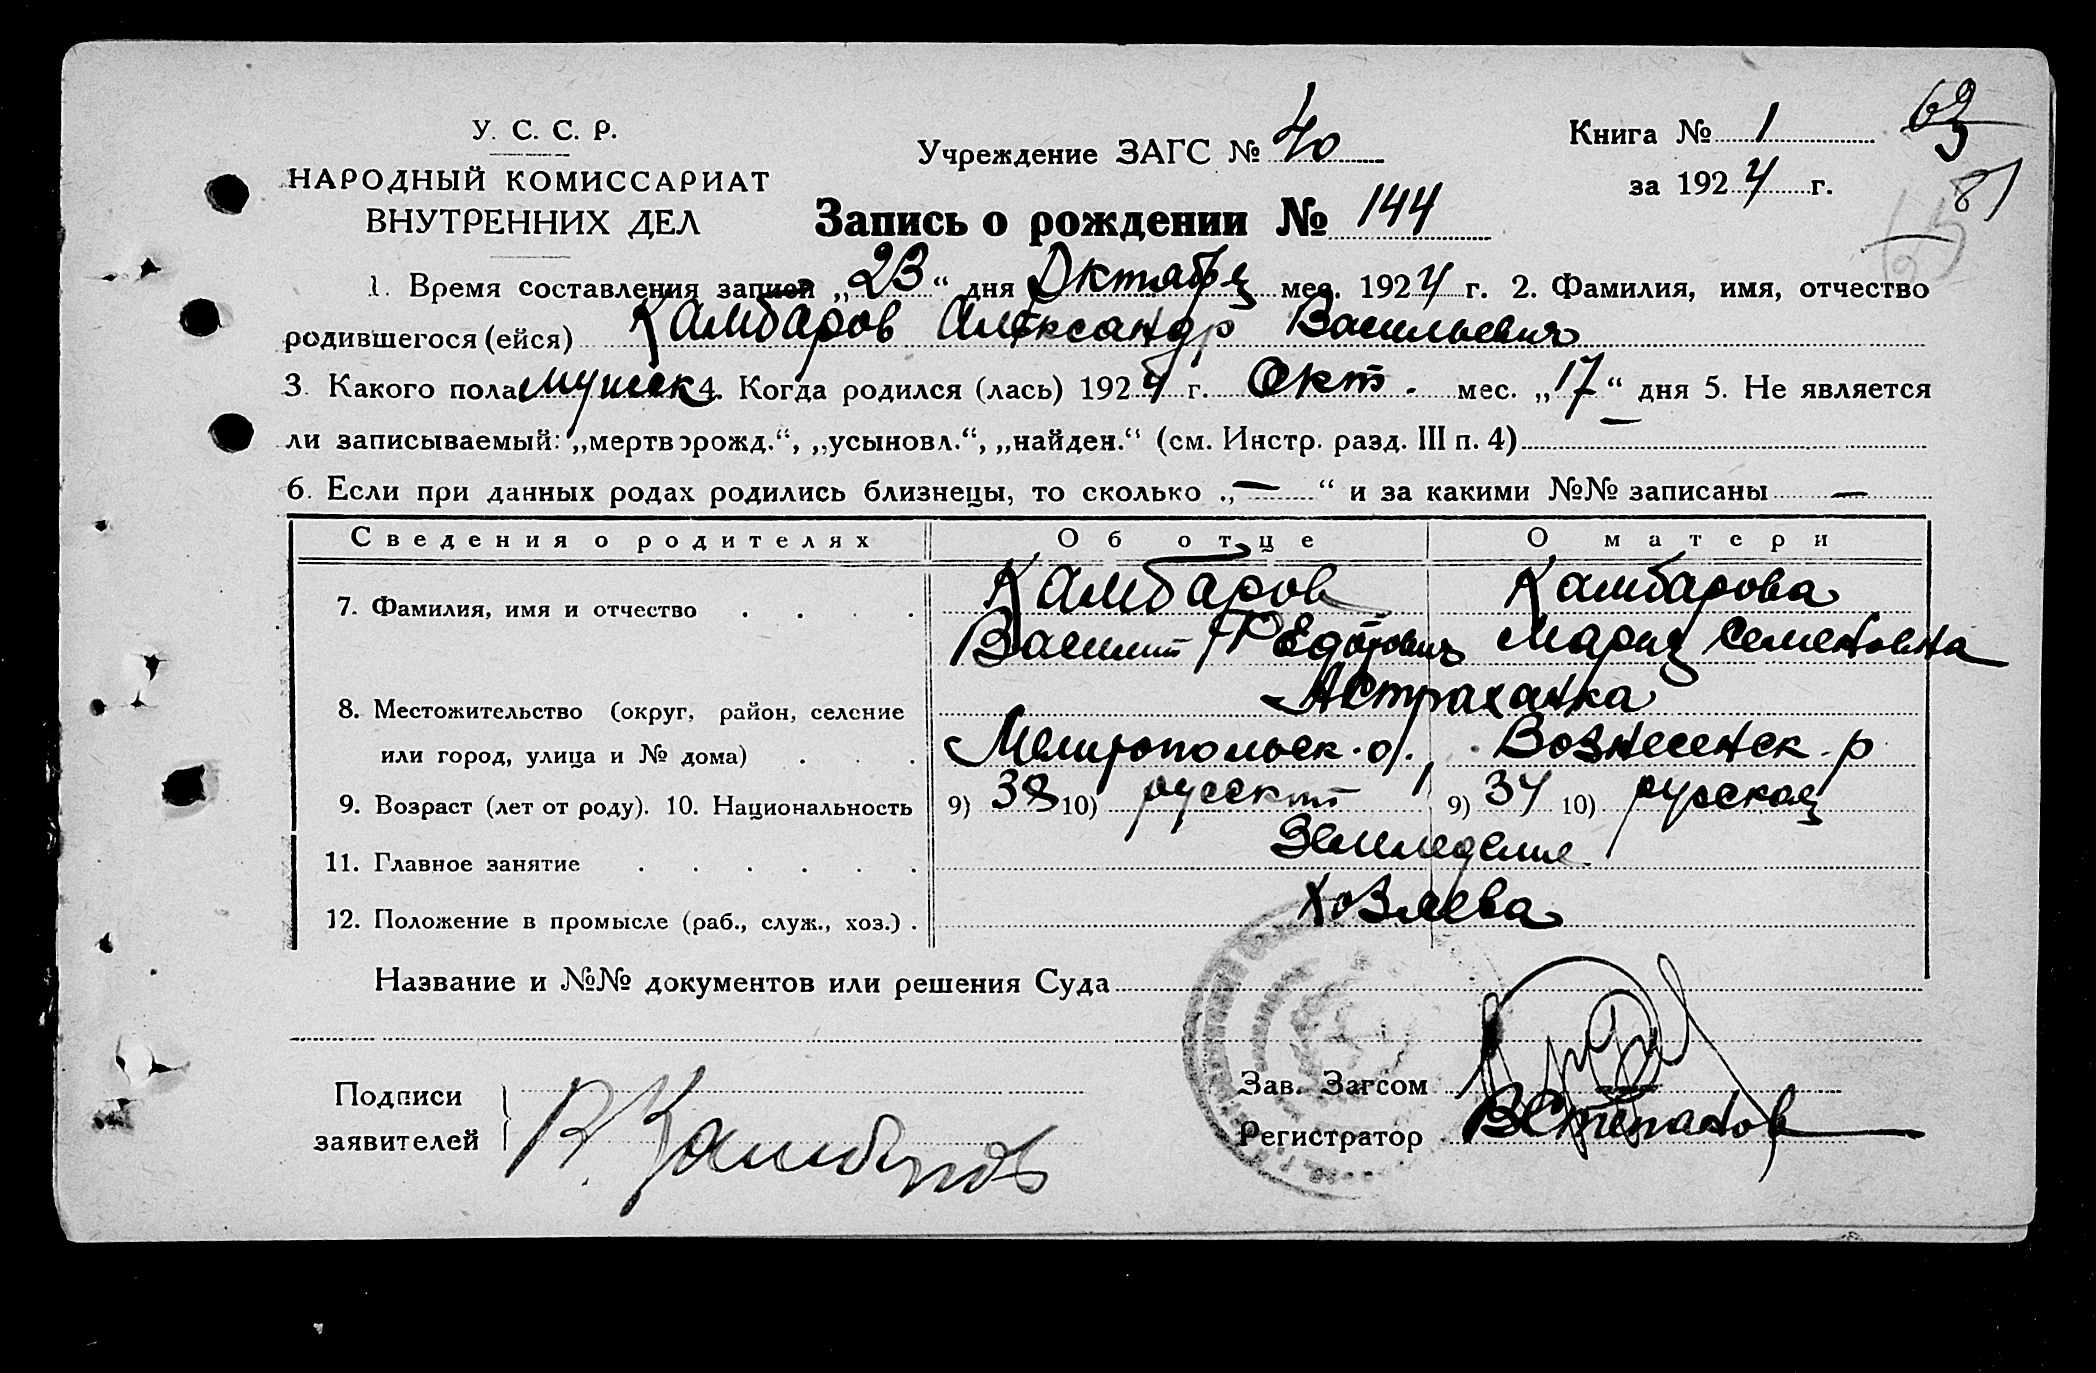 У. С. С. Р.
НАРОДНЫЙ КОМИССАРИАТ
ВНУТРЕННИХ ДЕЛ
Учреждение ЗАГС № 40
Книга № 1
за 1924 г.
69
81
Запись о рождении № 144
1. Время составления записи „23“ дня Октября мес. 1924 г. 2. Фамилия, имя, отчество
родившегося (ейся) Камбаров Александр Васильевич
3. Какого пола мужск 4. Когда родился (лась) 1924 г. Окт. мес. „17“ дня 5. Не является
ли записываемый: „мертворожд.“, „усыновл.“, „найден.“ (см. Инстр. разд. III п. 4) —
6. Если при данных родах родились близнецы, то сколько „—“ и за какими №№ записаны —
Сведения о родителях Об отце О матери
7. Фамилия, имя и отчество . . . . Камбаров Камбарова
Василий Федотович Мария Семеновна
Астраханка
8. Местожительство (округ, район, селение
или город, улица и № дома) . . . Мелитопольск. о/., Вознесенск. р
9. Возраст (лет от роду). 10. Национальность 9) 38 10) русский 9) 34 10) русская
11. Главное занятие . . . . . . Земледелие
12. Положение в промысле (раб., служ., хоз.) . Хозяева
Название и №№ документов или решения Суда
Подписи
заявителей
В. Камбаров
Зав. Загсом
Регистратор ВСтепанов